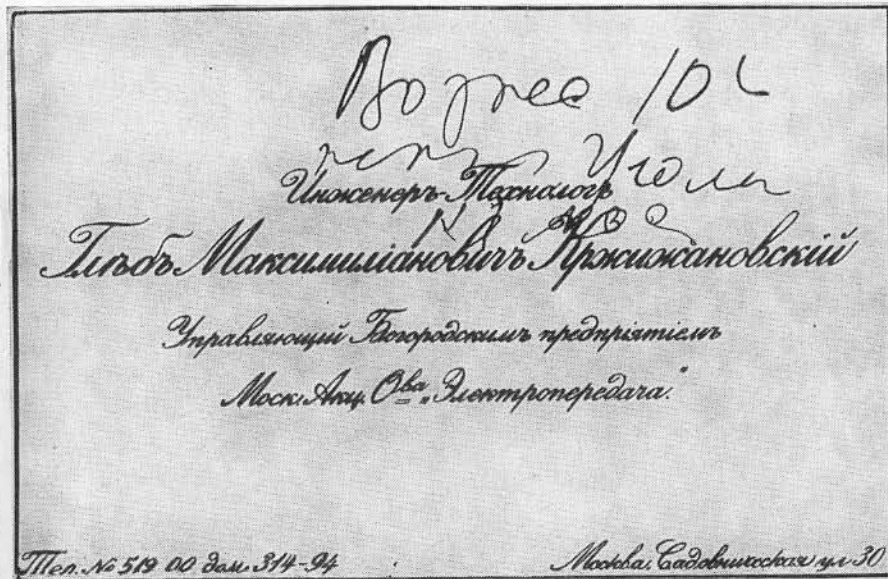 Инженеръ-Технологъ
Глѣбъ Максимиліановичъ Кржижановскій
Управляющій Богородскимъ предпріятіемъ
Моск. Акц. О-ва „Электропередача."
Тел. № 519 00 дом. 314-94
Москва. Садовническая ул 30